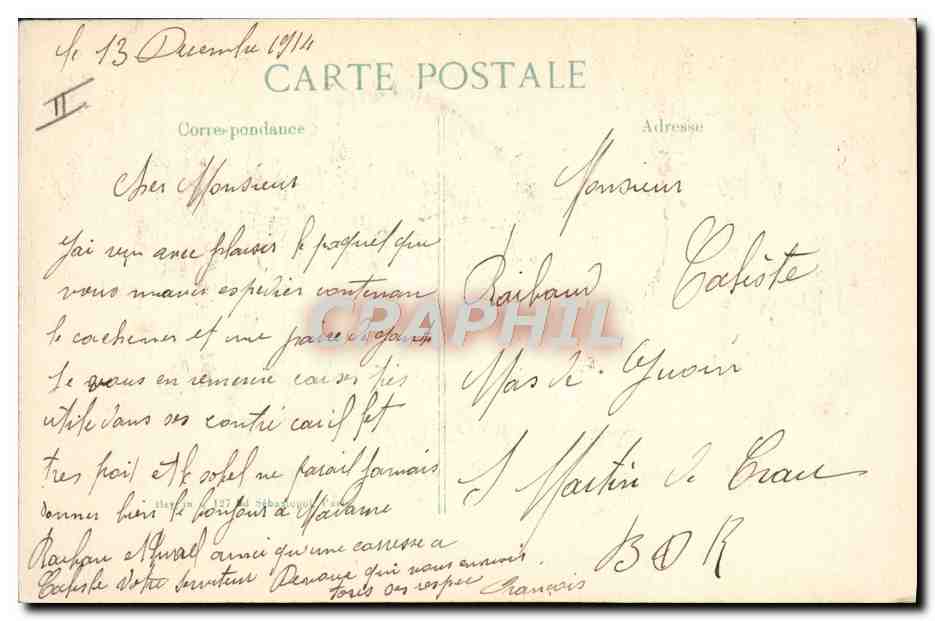 le 13 Decembre 1914
II
CARTE POSTALE
Correspondance
Adresse
Cher Monsieur
J'ai reçu avec plaisir le paquet que
vous mavez espedier contenan
le cachener et une paire de gans
Je vous en remersie car ses tres
utile dans ses contré car il fet
tres froit et le solel ne parait jamais
donner bien le bonjour a Madame
Raibau et ausi qu'une caresse a
Caliste Votre serviteur Devoué qui vous envoie
tous ses respec François
127 Bd Sébastopol Paris
Monsieur
Raibaud Caliste
Mas de
St Martin de Crau
B D R
CRAPHIL